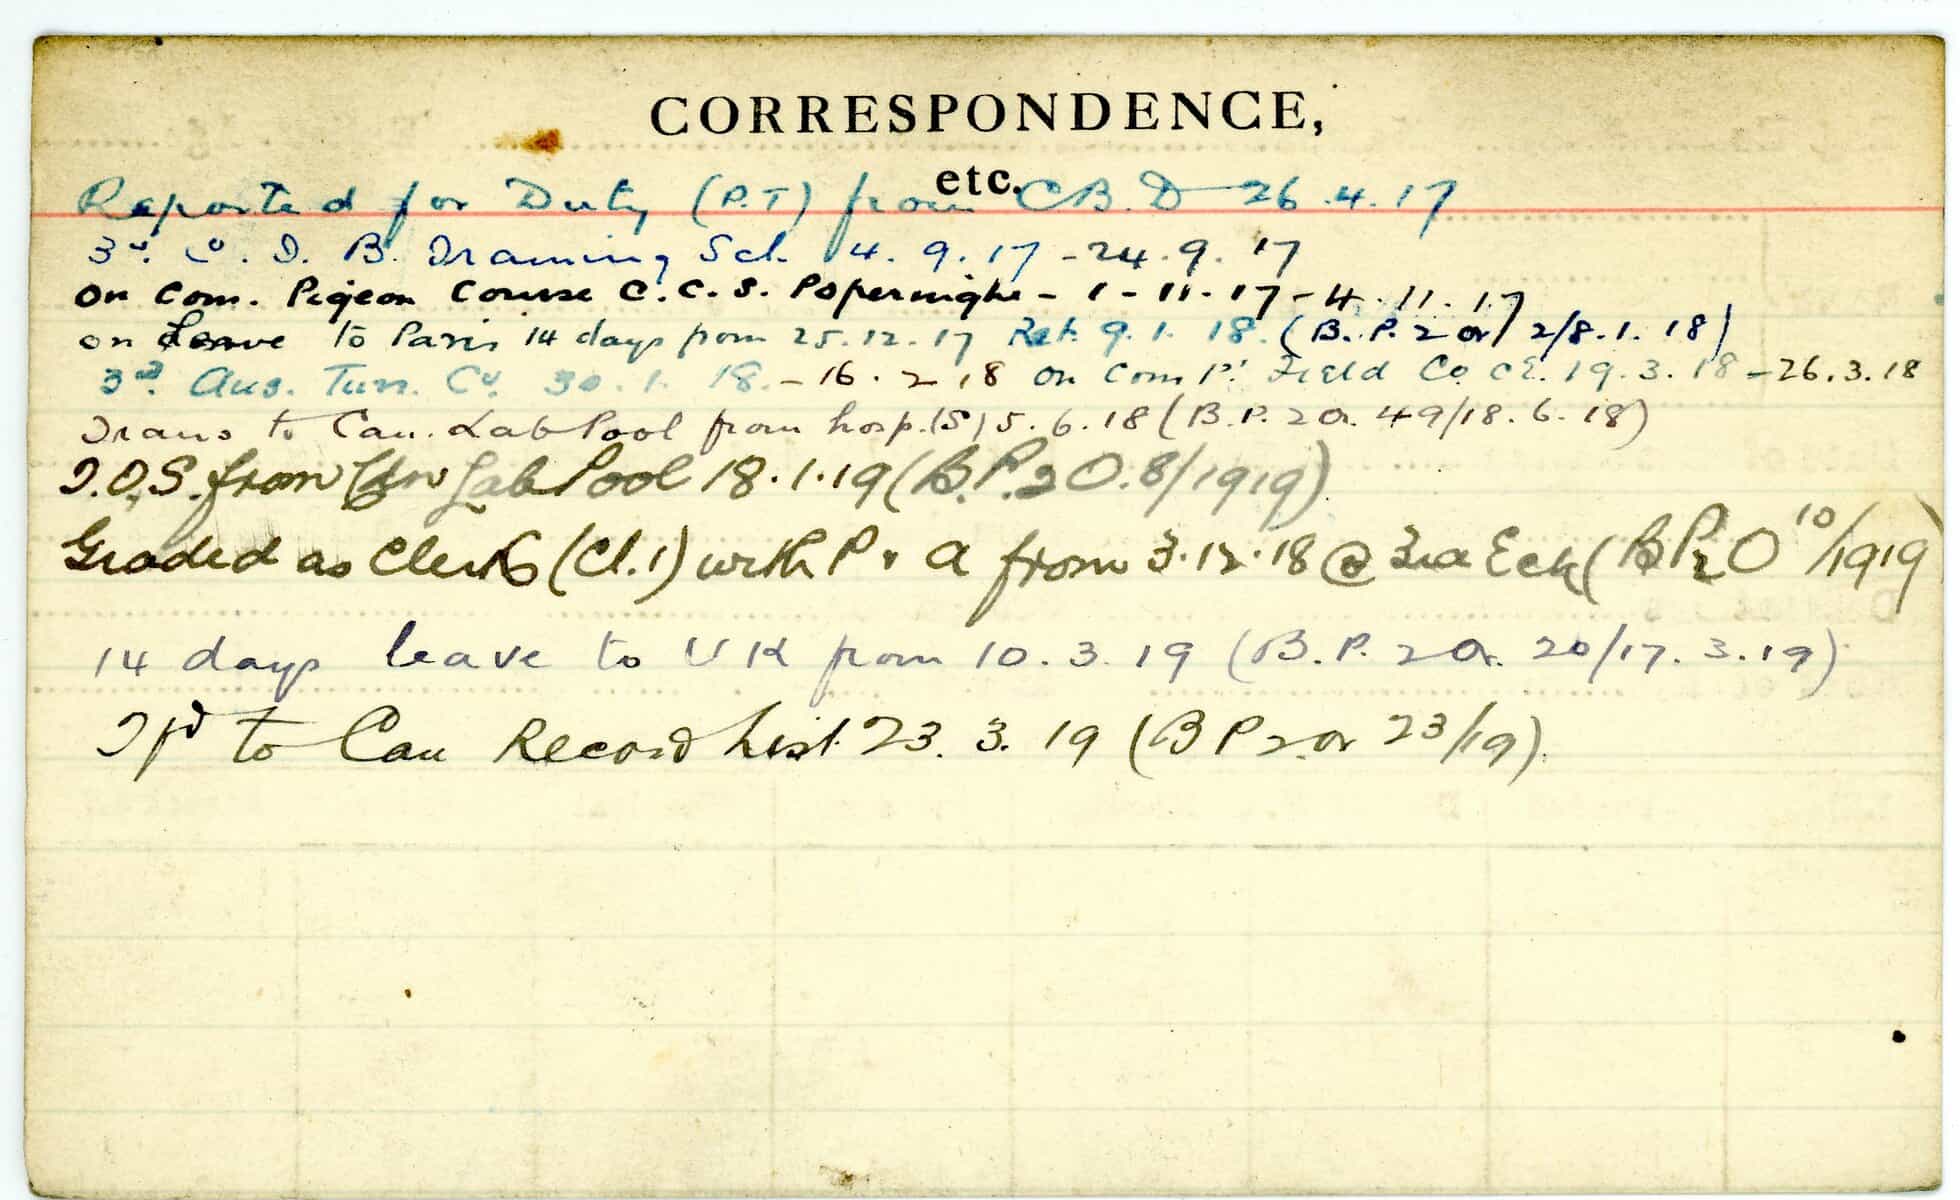 CORRESPONDENCE,
etc.
Reported for Duty (P.T) from CB.D 26.4.17
3rd C. I. B. Training Scl. 4. 9. 17 - 24. 9. 17
on Com. Pigeon Course C.C.S. Poperinighe - 1 - 11 - 17 - 4. 11. 17
on Leave to Paris 14 days from 25.12.17 Ret. 9. 1. 18. (B.P. 2 or 2/8. 1. 18)
3rd Aus. Tun. Co. 30. 1. 18. - 16. 2. 18 on Com 1st Field Co CE. 19. 3. 18 - 26.3.18
Trans to Can. Lab Pool from hosp. (S) 5. 6. 18 (B.P. 2 O. 49/18. 6. 18)
T.O.S. from Can Lab Pool 18.1.19 (B.P.2 O. 8/1919)
Graded as Clerk (Cl.1) with P & A from 3.12.18 @ Ech (B P2 O 10/1919
14 days leave to UK from 10. 3. 19 (B.P. 2 Or. 20/17. 3. 19)
Tfd to Can Record List 23. 3. 19 (B P 2 or 23/19).